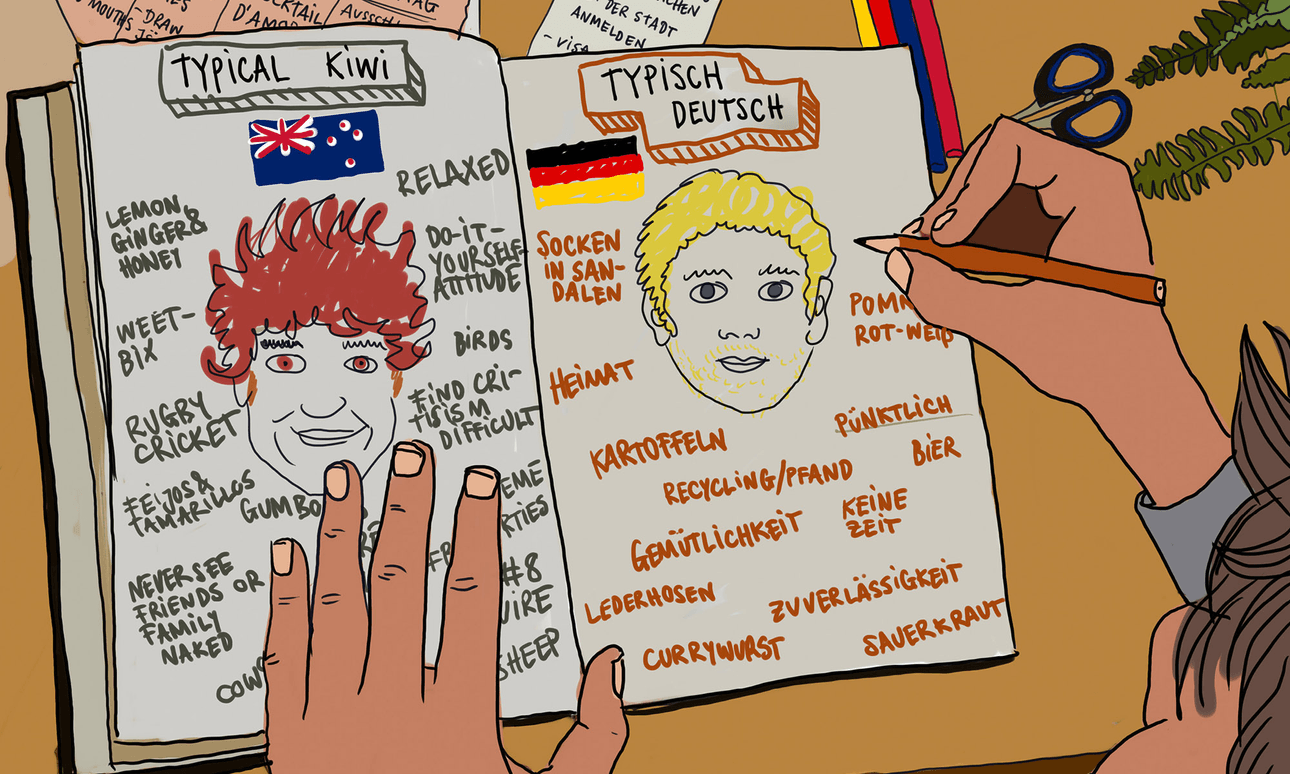 MOUTHS
- DRAW
COCKTAIL
D'AMO
AUSSCH
TAG
ACHEN
DER STADT
ANMELDEN
- VISA
TYPICAL KIWI
RELAXED
LEMON
GINGER&
HONEY
DO-IT-
YOURSELF-
ATTITUDE
WEET-
BIX
BIRDS
FIND CRI-
TISISM
DIFFICULT
RUGBY
CRICKET
FEIJOS&
TAMARILLOS
GUMBO
EME
RTIES
NEVER SEE
FRIENDS OR
FAMILY
NAKED
#8
WIRE
SHEEP
COWS
TYPISCH
DEUTSCH
SOCKEN
IN SAN-
DALEN
POMM
ROT-WEIß
HEIMAT
PÜNKTLICH
KARTOFFELN
BIER
RECYCLING/PFAND
KEINE
ZEIT
GEMÜTLICHKEIT
LEDERHOSEN
ZUVERLÄSSIGKEIT
CURRYWURST
SAUERKRAUT